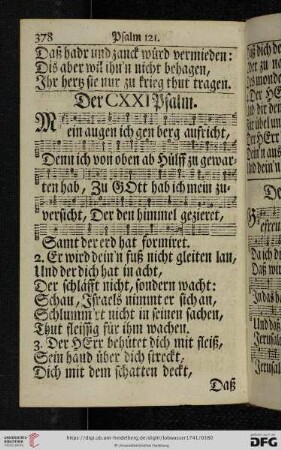 378 Psalm 121.
Daß hadr und zanck würd vermieden:
Dis aber wil ihn'n nicht behagen,
Ihr hertz sie nur zu krieg thut tragen.
Der CXXI Psalm.
Mein augen ich gen berg aufricht,
Denn ich von oben ab Hülff zu gewar-
ten hab, Zu GOtt hab ich mein zu-
versicht, Der den himmel gezieret,
Samt der erd hat formiret.
2. Er wird dein'n fuß nicht gleiten lan,
Und der dich hat in acht,
Der schläfft nicht, sondern wacht:
Schau, Israels nimmt er sich an,
Schlumm'rt nicht in seinen sachen,
Thut fleissig für ihm wachen.
3. Der HErr behütet dich mit fleiß,
Sein hand über dich streckt,
Dich mit dem schatten deckt,
Daß
http://digi.ub.uni-heidelberg.de/diglit/lobwasser1741/0380
© Universitätsbibliothek Heidelberg
gefördert durch die
DFG